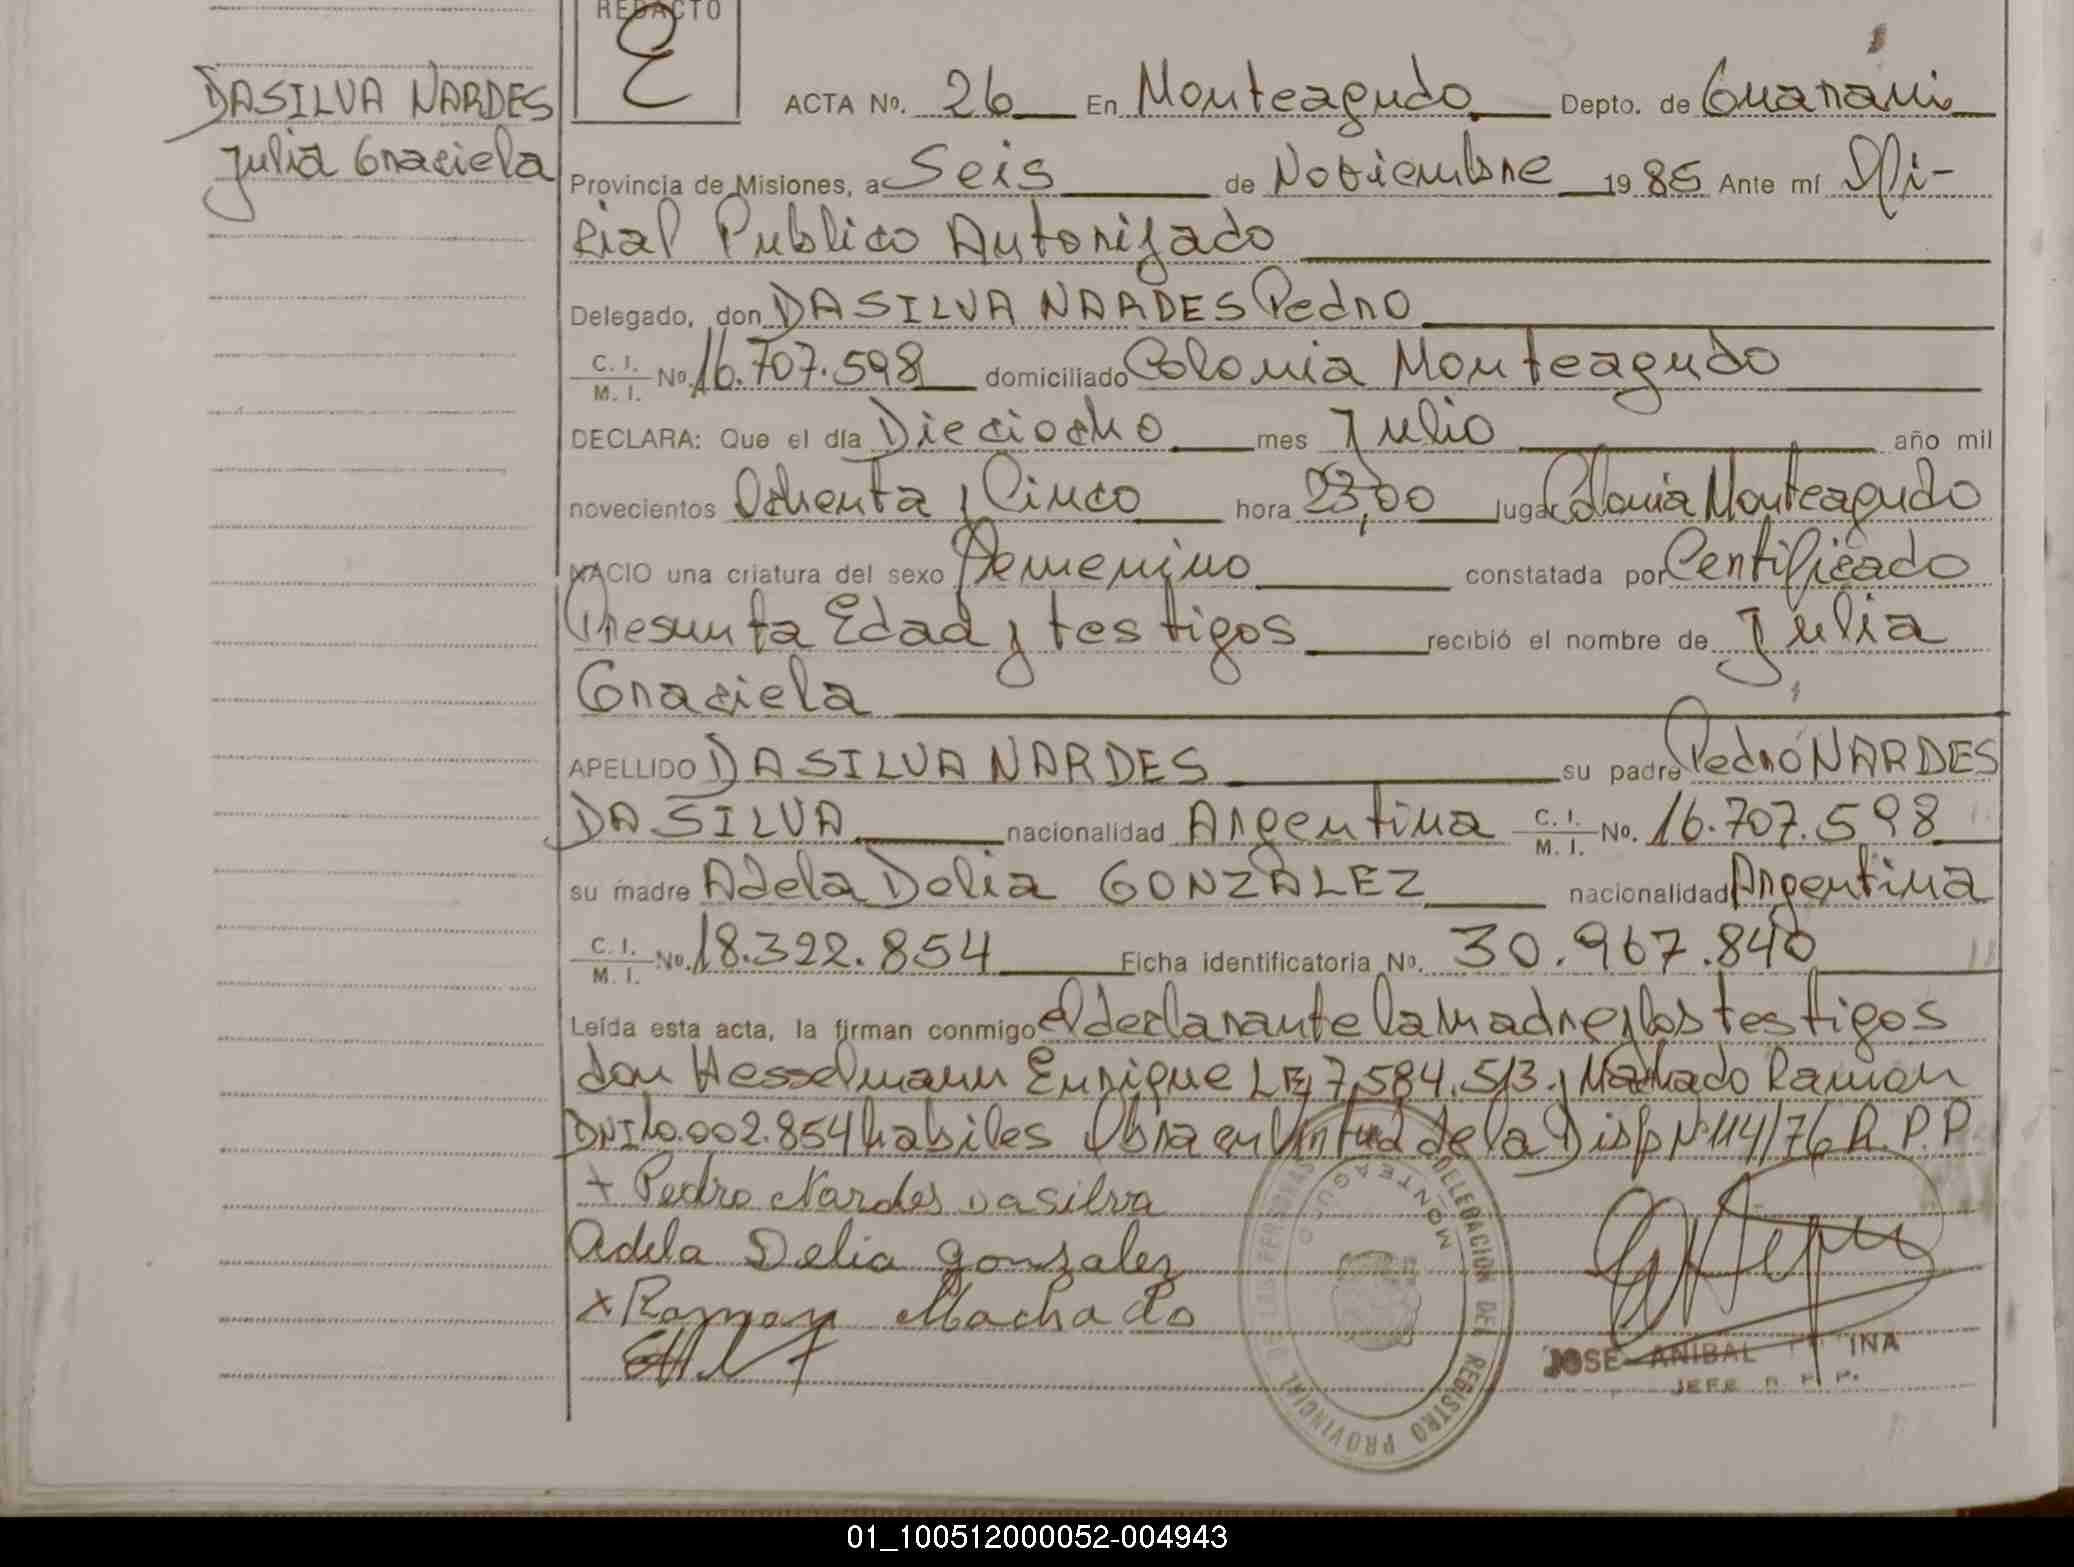 REDACTO
E
DASILVA NARDES
Julia Graciela
ACTA No. 26 En Monteagudo Depto. de Guarani
Provincia de Misiones, a Seis de Noviembre 1985 Ante mí Ofi-
cial Publico Autorizado
Delegado, don DA SILVA NARDES Pedro
C. I. / M. I. No. 16.707.598 domiciliado Colonia Monteagudo
DECLARA: Que el día Dieciocho mes Julio año mil
novecientos Ochenta y Cinco hora 23,00 lugar Colonia Monteagudo
NACIO una criatura del sexo Femenino constatada por Certificado
Presunta Edad y testigos recibió el nombre de Julia
Graciela
APELLIDO DA SILVA NARDES su padre Pedro NARDES
DA SILVA nacionalidad Argentina C. I. / M. I. No. 16.707.598
su madre Adela Delia GONZALEZ nacionalidad Argentina
C. I. / M. I. No. 18.322.854 Ficha identificatoria No. 30.967.840
Leída esta acta, la firman conmigo el declarante la madre y los testigos
don Hesselmann Enrique LE 7.584.513 y Machado Ramon
DNI 10.002.854 habiles Obra en Virtud de la Disp Nº 114/76 R.P.P
+ Pedro Nardes Dasilva
Adela Delia Gonzalez
x Ramon Machado
DELEGACION DEL REGISTRO PROVINCIAL DE LAS PERSONAS
MONTEAGUDO
JOSE ANIBAL
JEFE R. P. P.
01_100512000052-004943